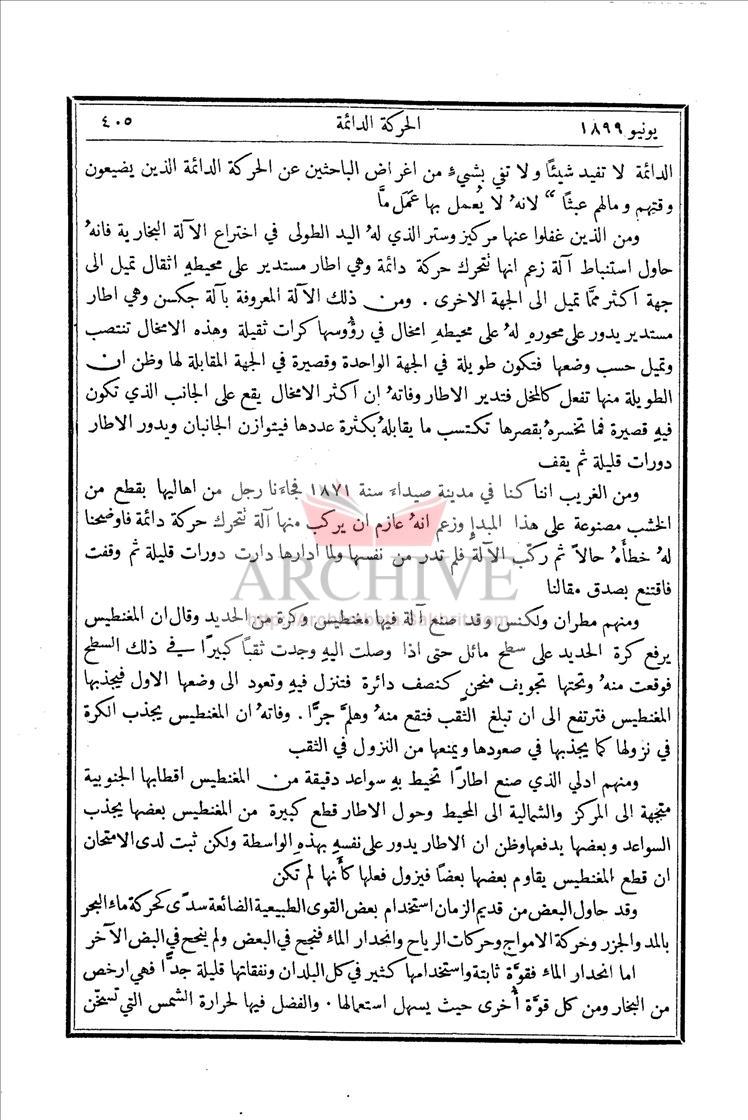 يونيو ١٨٩٩ الحركة الدائمة ٤٠٥
الدائمة لا تفيد شيئًا ولا تفي بشيءٍ من اغراض الباحثين عن الحركة الدائمة الذين يضيعون
وقتهم ومالهم عبثًا " لانهُ لا يُعمل بها عَمَل مَّا
ومن الذين غفلوا عنها مركيز وستر الذي لهُ اليد الطولى في اختراع الآلة البخارية فانهُ
حاول استنباط آلة زعم انها تتحرك حركة دائمة وهي اطار مستدير على محيطهِ اثقال تميل الى
جهة اكثر ممَّا تميل الى الجهة الاخرى . ومن ذلك الآلة المعروفة بآلة جكسن وهي اطار
مستدير يدور على محوره لهُ على محيطهِ امخال في رؤوسها كرات ثقيلة وهذه الامخال تنتصب
وتميل حسب وضعها فتكون طويلة في الجهة الواحدة وقصيرة في الجهة المقابلة لها وظن ان
الطويلة منها تفعل كالمخل فتدير الاطار وفاتهُ ان اكثر الامخال يقع على الجانب الذي تكون
فيهِ قصيرة فما تخسرهُ بقصرها تكتسب ما يقابلهُ بكثرة عددها فيتوازن الجانبان ويدور الاطار
دورات قليلة ثم يقف
ومن الغريب اننا كنا في مدينة صيداء سنة ١٨٧١ فجاءنا رجل من اهاليها بقطع من
الخشب مصنوعة على هذا المبدإِ وزعم انهُ عازم ان يركب منها آلة تتحرك حركة دائمة فاوضحنا
لهُ خطأَهُ حالاً ثم ركّب الآلة فلم تدر من نفسها ولما ادارها دارت دورات قليلة ثم وقفت
فاقتنع بصدق مقالنا
ARCHIVE
ومنهم مطران ولكنس وقد صنع آلة فيها مغنطيس وكرة من الحديد وقال ان المغنطيس
يرفع كرة الحديد على سطح مائل حتى اذا وصلت اليهِ وجدت ثقبًا كبيرًا في ذلك السطح
فوقعت منهُ وتحتها تجويف منحنٍ كنصف دائرة فتنزل فيهِ وتعود الى وضعها الاول فيجذبها
المغنطيس فترتفع الى ان تبلغ الثقب فتقع منهُ وهلمَّ جرًّا . وفاتهُ ان المغنطيس يجذب الكرة
في نزولها كما يجذبها في صعودها ويمنعها من النزول في الثقب
ومنهم ادلي الذي صنع اطارًا تحيط بهِ سواعد دقيقة من المغنطيس اقطابها الجنوبية
متجهة الى المركز والشمالية الى المحيط وحول الاطار قطع كبيرة من المغنطيس بعضها يجذب
السواعد وبعضها يدفعها وظن ان الاطار يدور على نفسهِ بهذهِ الواسطة ولكن ثبت لدى الامتحان
ان قطع المغنطيس يقاوم بعضها بعضًا فيزول فعلها كأَنها لم تكن
وقد حاول البعض من قديم الزمان استخدام بعض القوى الطبيعية الضائعة سدًى كحركة ماء البحر
بالمد والجزر وحركة الامواج وحركات الرياح وانحدار الماء فنجح في البعض ولم ينجح في البض الآخر
اما انحدار الماء فقوَّة ثابتة واستخدامها كثير في كل البلدان ونفقاتها قليلة جدًّا فهي ارخص
من البخار ومن كل قوَّة أُخرى حيث يسهل استعمالها . والفضل فيها لحرارة الشمس التي تسخّن